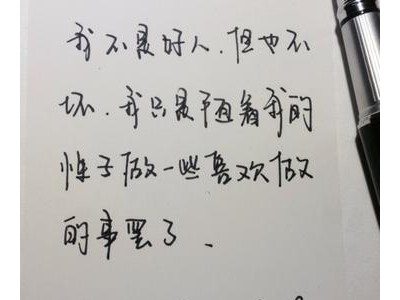 我不是好人.但也不
坏.我只是随着我的
性子做一些喜欢做
的事罢了、